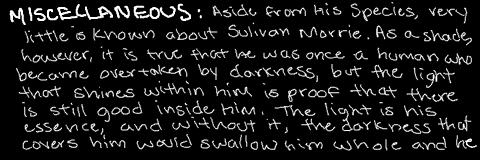 MISCELLANEOUS: Aside from his Species, very
little is known about Sulivan Morrie. As a shade,
however, it is true that he was once a human who
became overtaken by darkness, but the light
that shines within him is proof that there
is still good inside him. The light is his
essence, and without it, the darkness that
covers him would swallow him whole and he